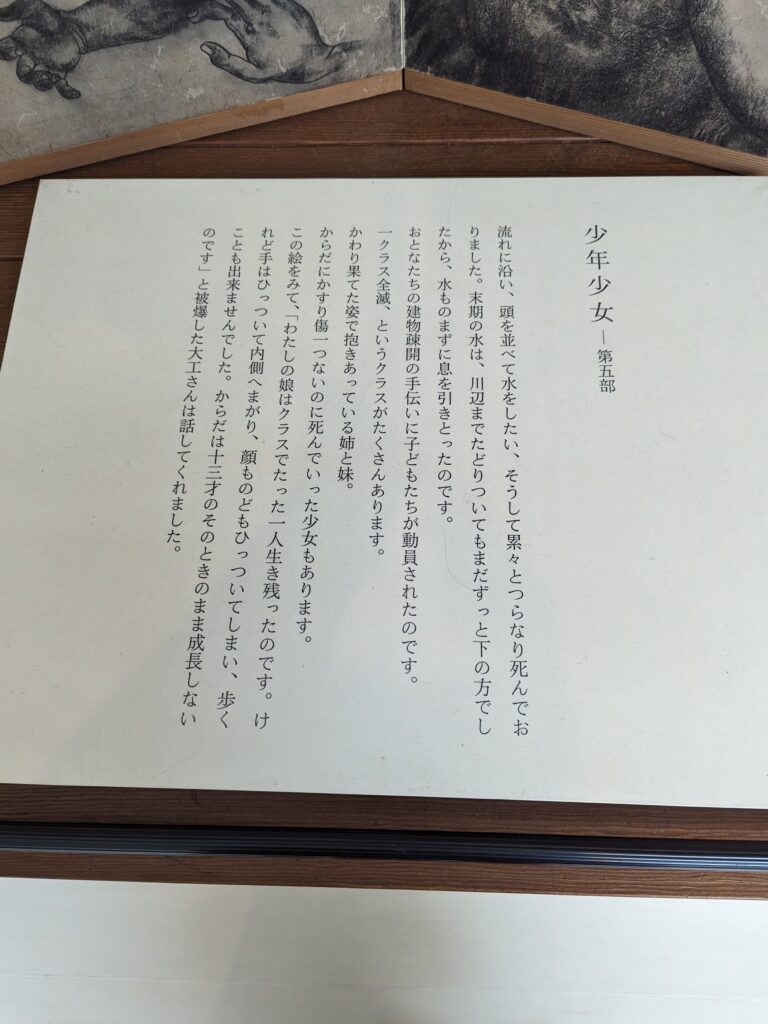 少年少女―第五部
流れに沿い、頭を並べて水をしたい、そうして累々とつらなり死んでお
りました。末期の水は、川辺までたどりついてもまだずっと下の方でし
たから、水ものまずに息を引きとったのです。
おとなたちの建物疎開の手伝いに子どもたちが動員されたのです。
一クラス全滅、というクラスがたくさんあります。
かわり果てた姿で抱きあっている姉と妹。
からだにかすり傷一つないのに死んでいった少女もあります。
この絵をみて、「わたしの娘はクラスでたった一人生き残ったのです。け
れど手はひっついて内側へまがり、顔ものどもひっついてしまい、歩く
ことも出来ませんでした。からだは十三才のそのときのまま成長しない
のです」と被爆した大工さんは話してくれました。